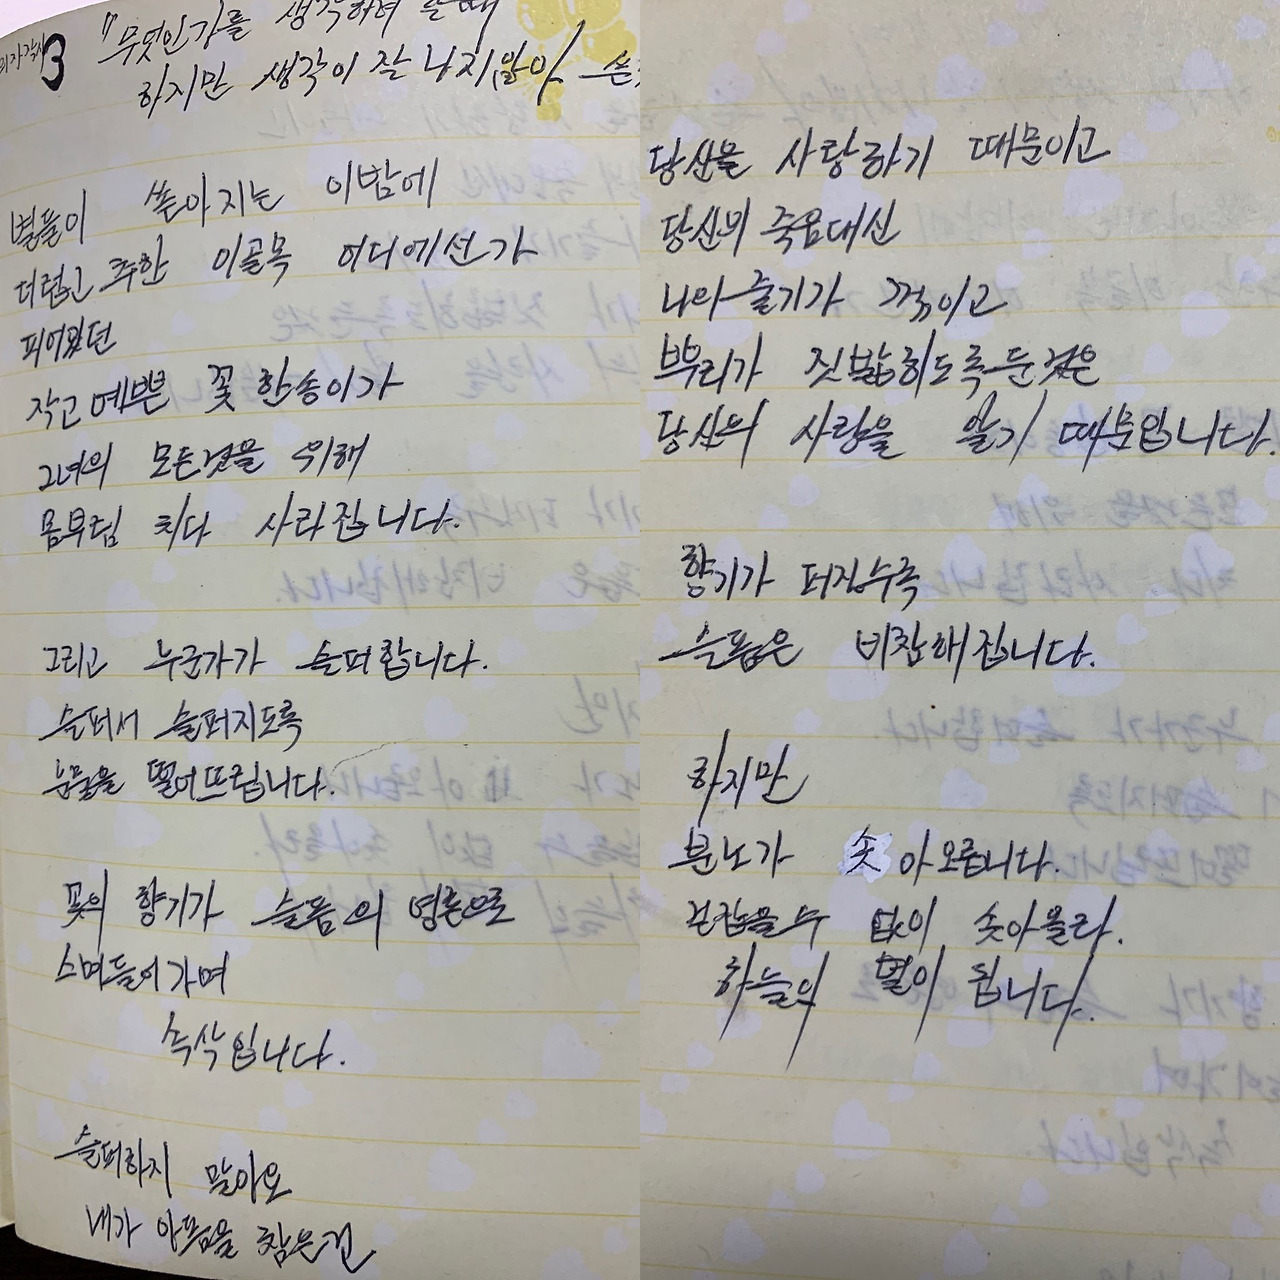 3 "무엇인가를 생각하려 할때
하지만 생각이 잘 나지않아
별들이 쏟아지는 이밤에
더럽고 추한 이골목 어디에선가
피어있던
작고예쁜 꽃 한송이가
그녀의 모든것을 위해
몸부림 치다 사라집니다.
그리고 누군가가 슬퍼합니다.
슬퍼서 슬퍼지도록
눈물을 떨어뜨립니다.
꽃의 향기가 슬픔의 영혼으로
스며들어가며
속삭입니다.
슬퍼하지 말아요
내가 아픔을 참은건
당신을 사랑하기 때문이고
당신의 죽음대신
나의 줄기가 꺾이고
뿌리가 짓밟히도록둔것은
당신의 사랑을 알기 때문입니다.
향기가 퍼질수록
슬픔은 비참해집니다.
하지만
분노가 솟아오릅니다.
걷잡을수 없이 솟아올라.
하늘의 별이 됩니다.